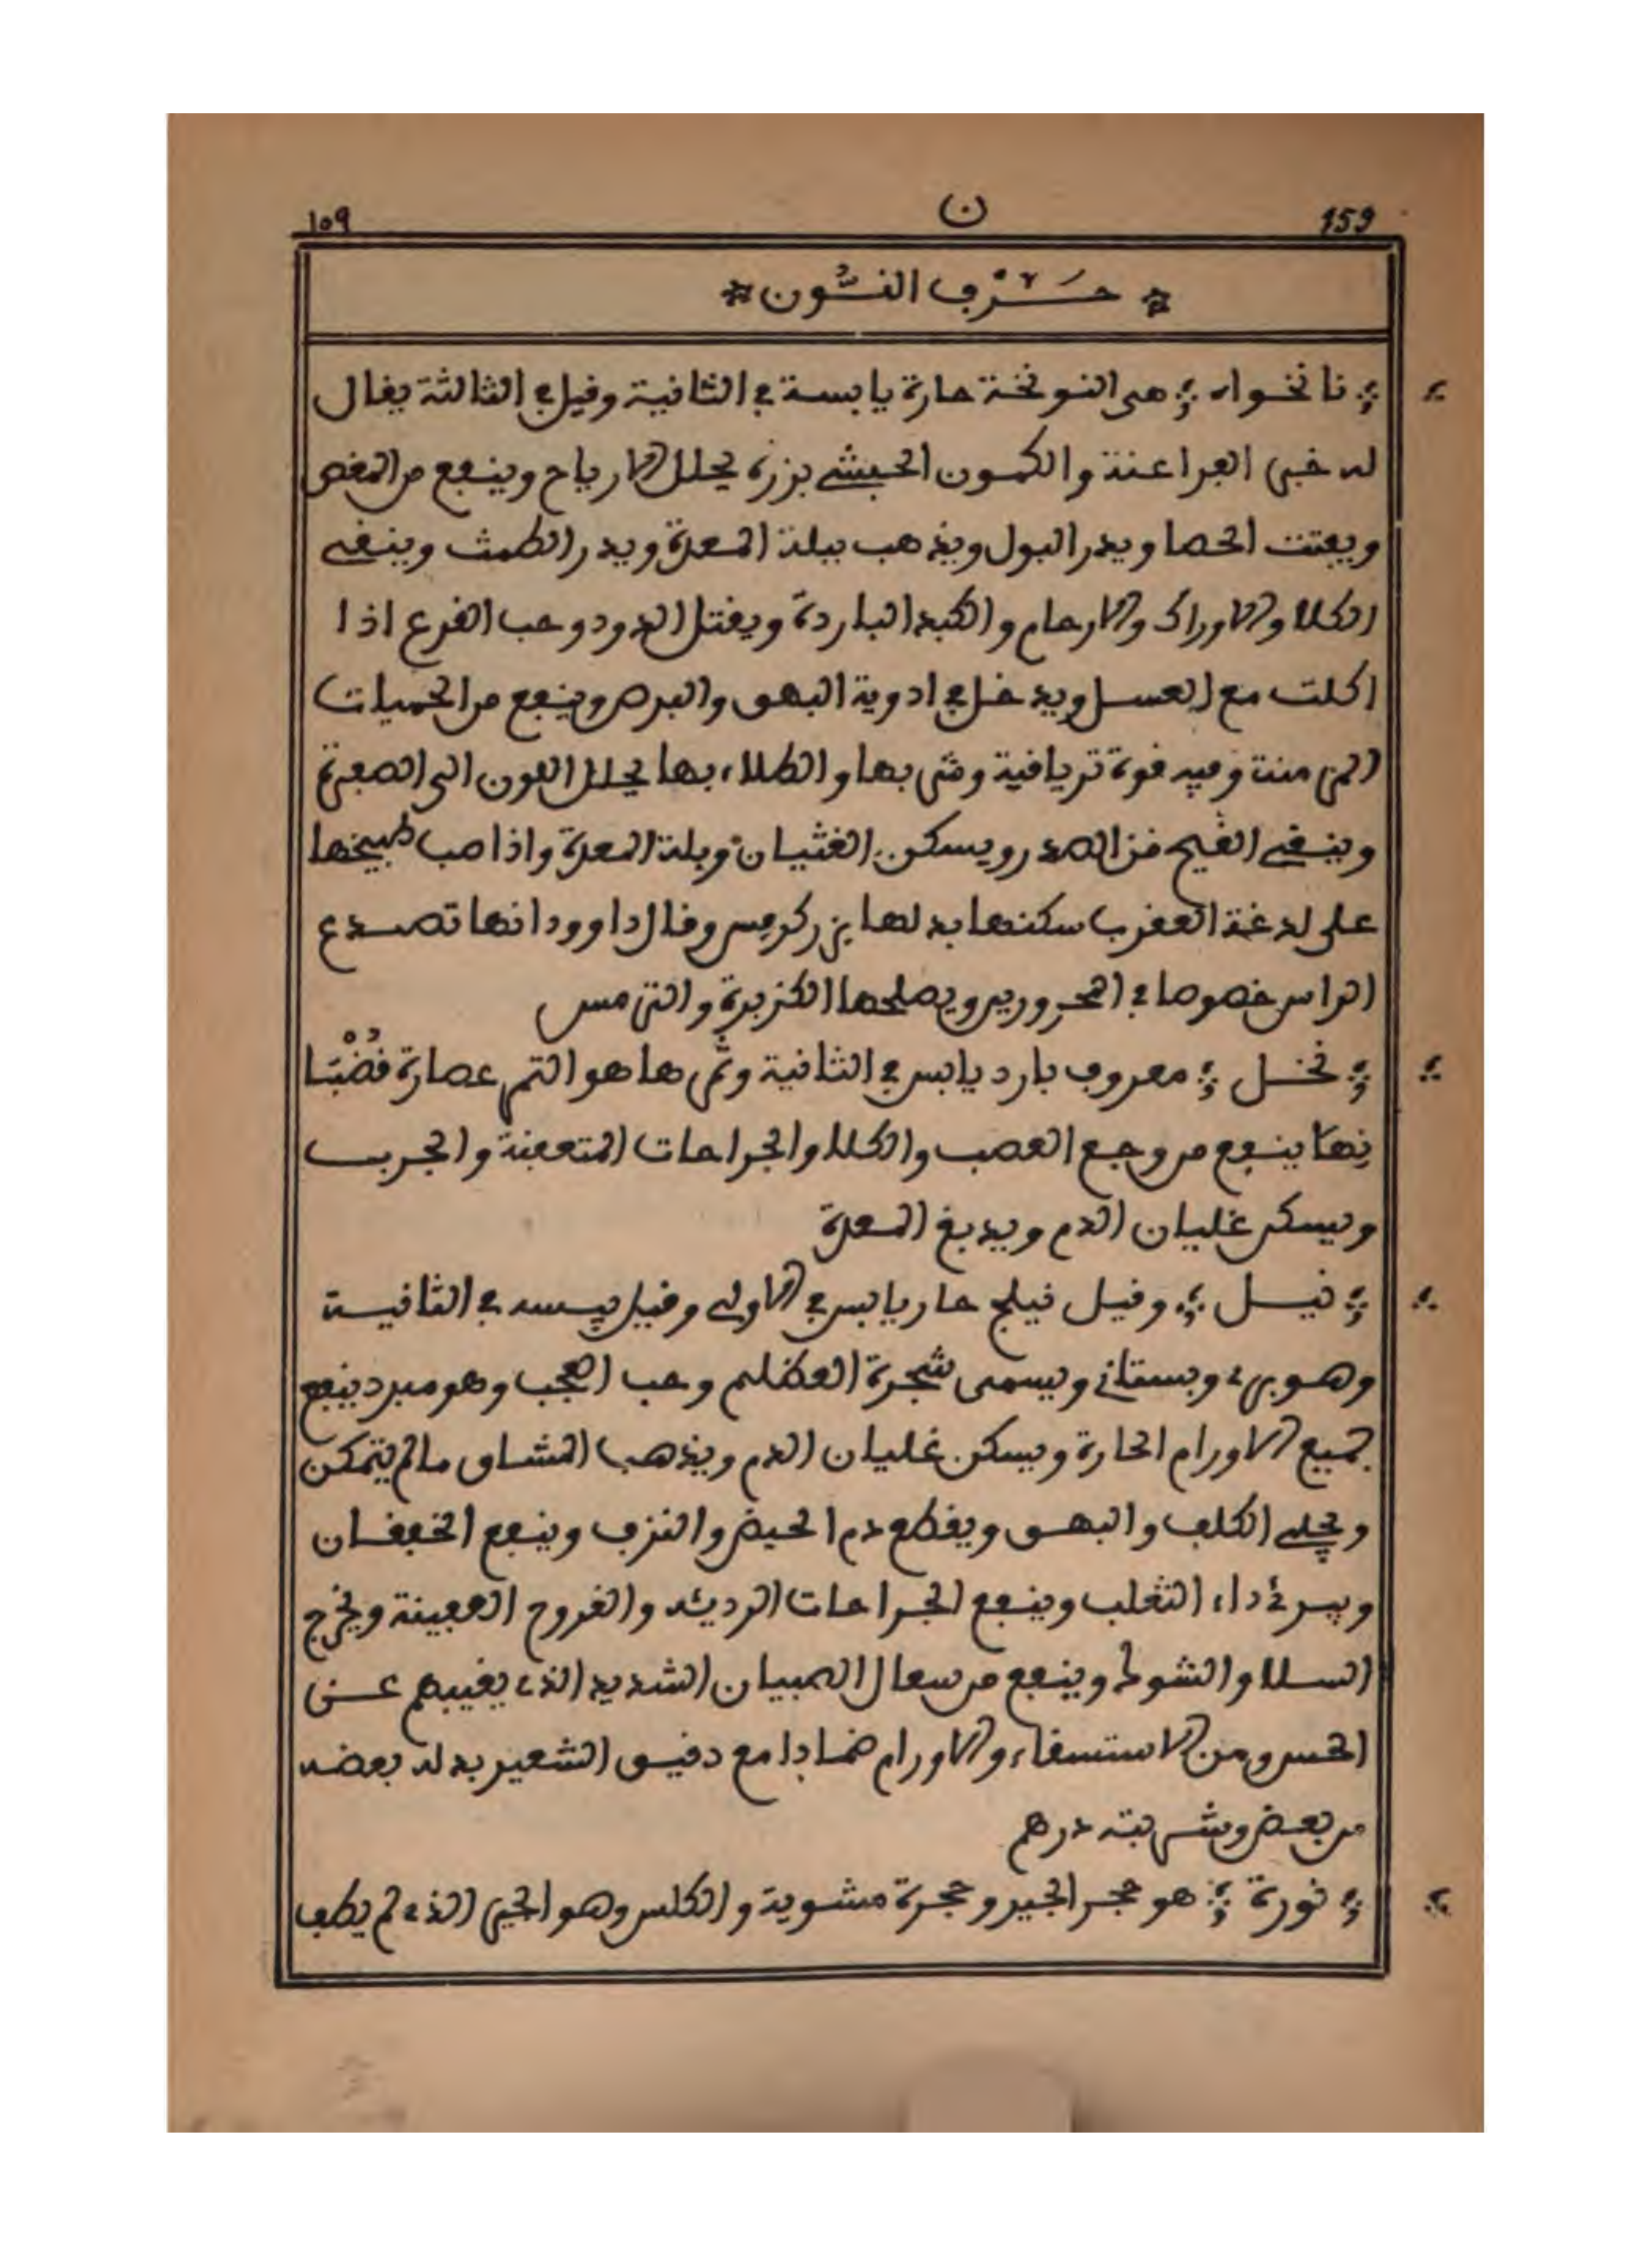 159 ن ١٥٩
* حَرْف النُّون *
نانخواه هى النونخة حارة يابسة في الثانية وقيل في الثالثة يقال
له خبز الفراعنة والكمون الحبشي بزره يحلل الارياح وينفع من المغص
ويفتت الحصا ويدر البول ويذهب ببلة المعدة ويدر الطمث وينقي
الكلا والاوراك والارحام والكبد الباردة ويقتل الدود وحب القرع اذا
اكلت مع العسل ويدخل في ادوية البهق والبرص وينفع من الحميات
المزمنة وفيه قوة ترياقية وشربها والطلاء بها يحلل اللون الى الصفرة
وينقي القيح من الصدر ويسكن الغثيان وبلة المعدة واذا صب طبيخها
على لدغة العقرب سكنها بدلها بزر كرفس وقال داوود انها تصدع
الراس خصوصا في المحرورين ويصلحها الكزبرة والترمس
نخل معروف بارد يابس في الثانية وثمرها هو التمر عصارة قُضْبَا
نها ينفع من وجع العصب والكلا والجراحات المتعفنة والجرب
ويسكن غليان الدم ويدبغ المعدة
نيل وقيل نيلج حار يابس في الاولى وقيل يبسه في الثانية
وهو بري وبستاني ويسمى شجرة العظلم وحب العجب وهو مبرد ينفع
جميع الاورام الحارة ويسكن غليان الدم ويذهب المشاق ما لم يتمكن
ويجلي الكلف والبهق ويقطع دم الحيض والنزف وينفع الخفقان
ويبرئ داء الثعلب وينفع الجراحات الرديئه والقروح العفينة ويخرج
السلا والشوط وينفع من سعال الصبيان الشديد الذي يغيبهم عن
الحس ومن الاستسقاء والاورام ضمادا مع دقيق الشعير بدله بعضه
من بعض وشربته درهم
نورة هو حجر الجير وحجرة مشوية والكلس وهو الجير الذي لم يطف